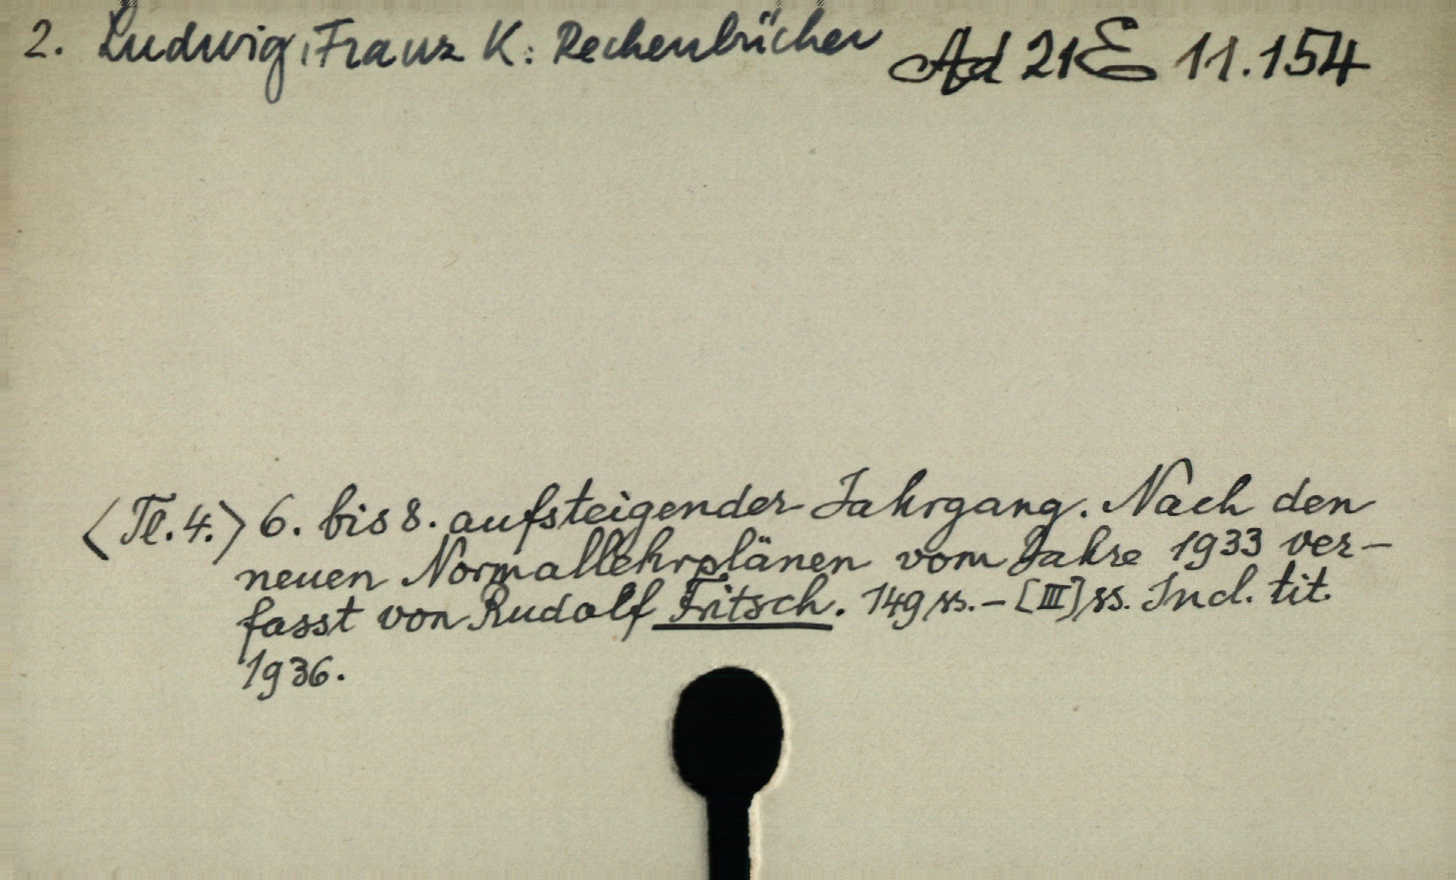 2. Ludwig, Franz K.: Rechenbücher Ad 21 E 11.154
<Tl. 4.> 6. bis 8. aufsteigender Jahrgang. Nach den
neuen Normallehrplänen vom Jahre 1933 ver-
fasst von Rudolf Fritsch. 149 ss. - [III] ss. Incl. tit.
1936.